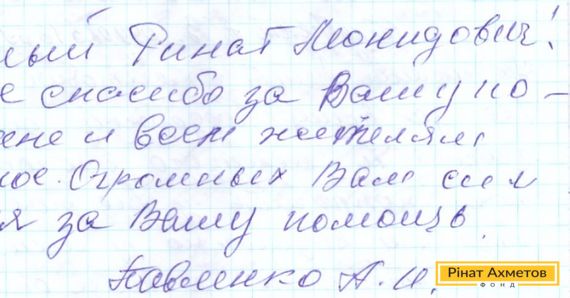 ный Ринат Леонидович!
е спасибо за Вашу по-
ене и всем жителям
ное. Огромных Вам сил
я за Вашу помощь.
Павленко А. И.
Рінат Ахметов
ФОНД